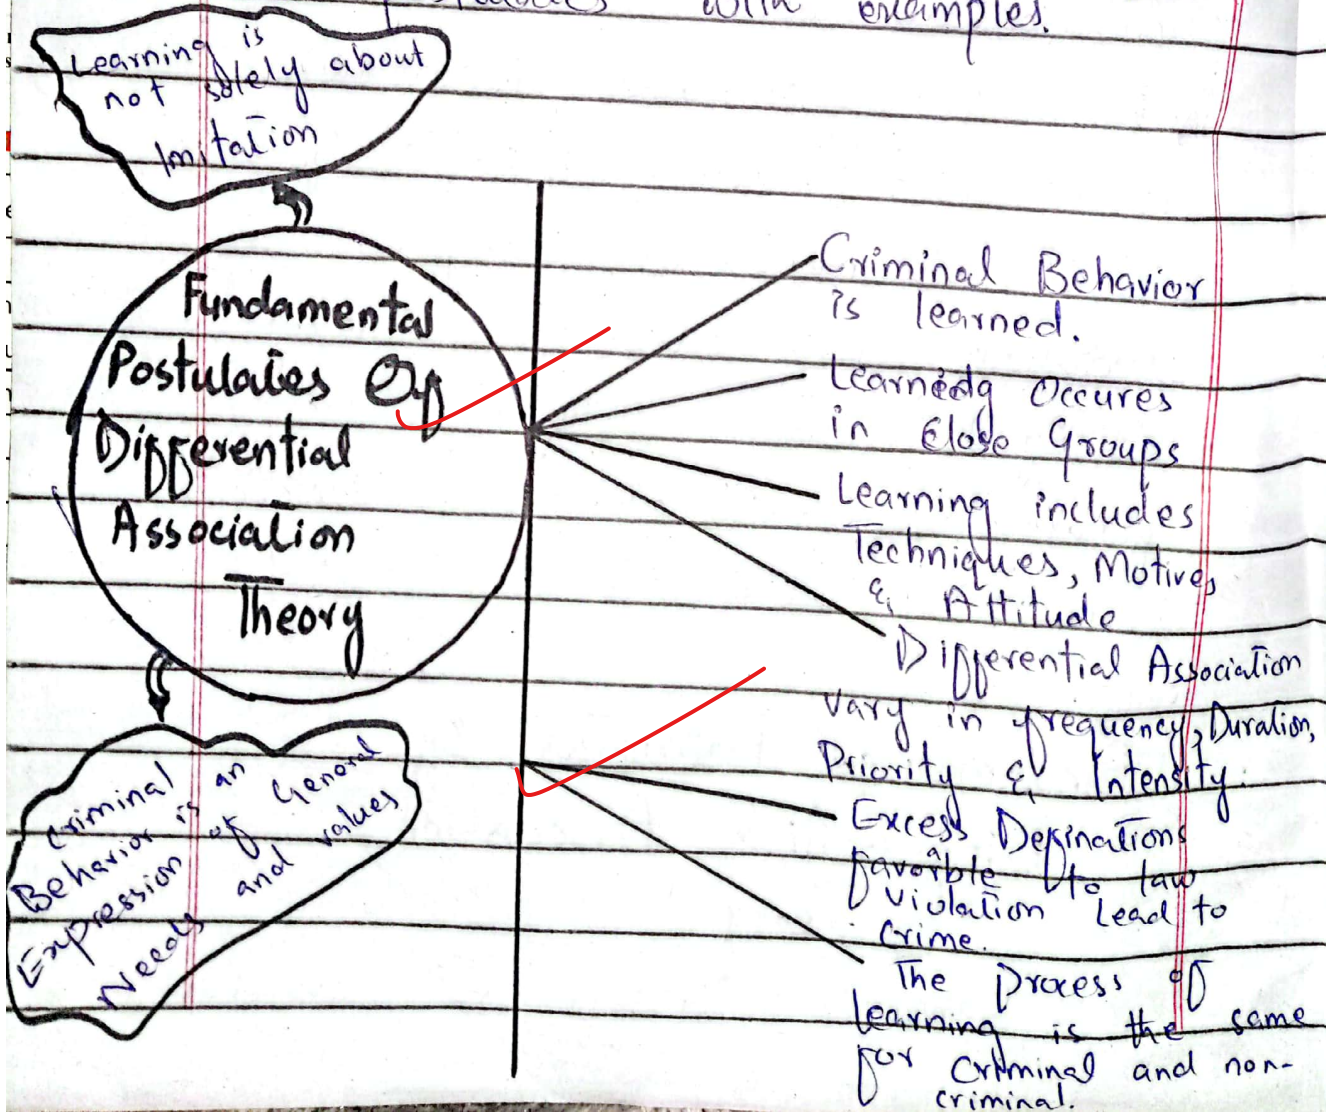 with examples.
Learning is
not solely about
Imitation
Fundamental
Postulates Of
Differential
Association
Theory
Criminal
Behavior is an
Expression of General
Needs and values
Criminal Behavior
is learned.
Learning Occures
in Close Groups
Learning includes
Techniques, Motives,
& Attitude
Differential Association
vary in frequency, Duration,
Priority & Intensity.
Excess Definations
favorble to law
violation Lead to
crime.
The Process of
learning is the same
for criminal and non-
criminal.